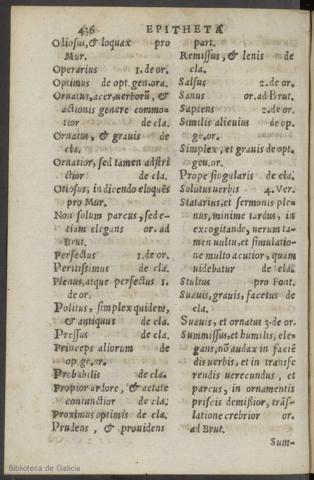 436 EPITHETA
Odiosus, & loquax pro
Mur.
Operarius 1. de or.
Optimus de opt. gen. ora.
Ornatus, acer, uerborũ, &
actionis genere commo-
tior de cla.
Ornatus, & grauis de
cla.
Ornatior, sed tamen adstri
ctior de cla.
Otiosus, in dicendo eloquẽs
pro Mur.
Non solum parcus, sed e-
tiam elegans or. ad
Brut.
Perfectus 1. de or.
Peritissimus de cla.
Plenus, atque perfectus 1.
de or.
Politus, simplex quidem,
& antiquus de cla.
Pressus de cla.
Princeps aliorum de
op. ge. or.
Probabilis de cla.
Propior ardore, & aetate
coniunctior de cla.
Proximus optimis de cla.
Prudens, & prouidens
part.
Remissus, & lenis de
cla.
Salsus 2. de or.
Sanus or. ad Brut.
Sapiens 2. de or.
Similis alicuius de op.
ge. or.
Simplex, et grauis de opt.
gen. or.
Prope singularis de cla.
Solutus verbis 4. Ver.
Statarius, et sermonis ple-
nus, minime tardus, in
excogitando, uerum ta-
men uultu, et simulatio-
ne multo acutior, quam
uidebatur de cla.
Stultus pro Font.
Suauis, grauis, facetus de
cla.
Suauis, et ornatus 3. de or.
Summissus, et humilis, ele-
gans, nõ audax in faciẽ
dis uerbis, et in transfe
rendis uerecundus, et
parcus, in ornamentis
priscis demissior, trãs-
latione crebrior or.
ad Brut.
Sum-
Biblioteca de Galicia